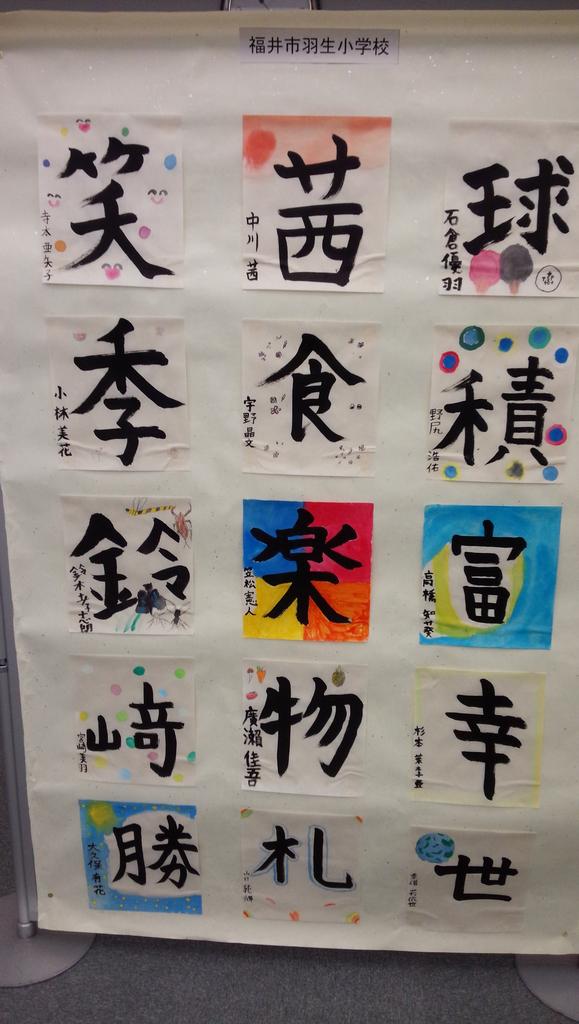 福井市羽生小学校
笑
寺本 亜矢子
茜
中川 茜
球
石倉優羽
季
小林美花
食
宇野晶文
積
野尻 浩佑
鈴
鈴木孝志朗
楽
笠松憲人
富
高橋 知葵
崎
宮崎美羽
物
廣瀬佳吾
幸
杉本
勝
大久保 有花
札
世